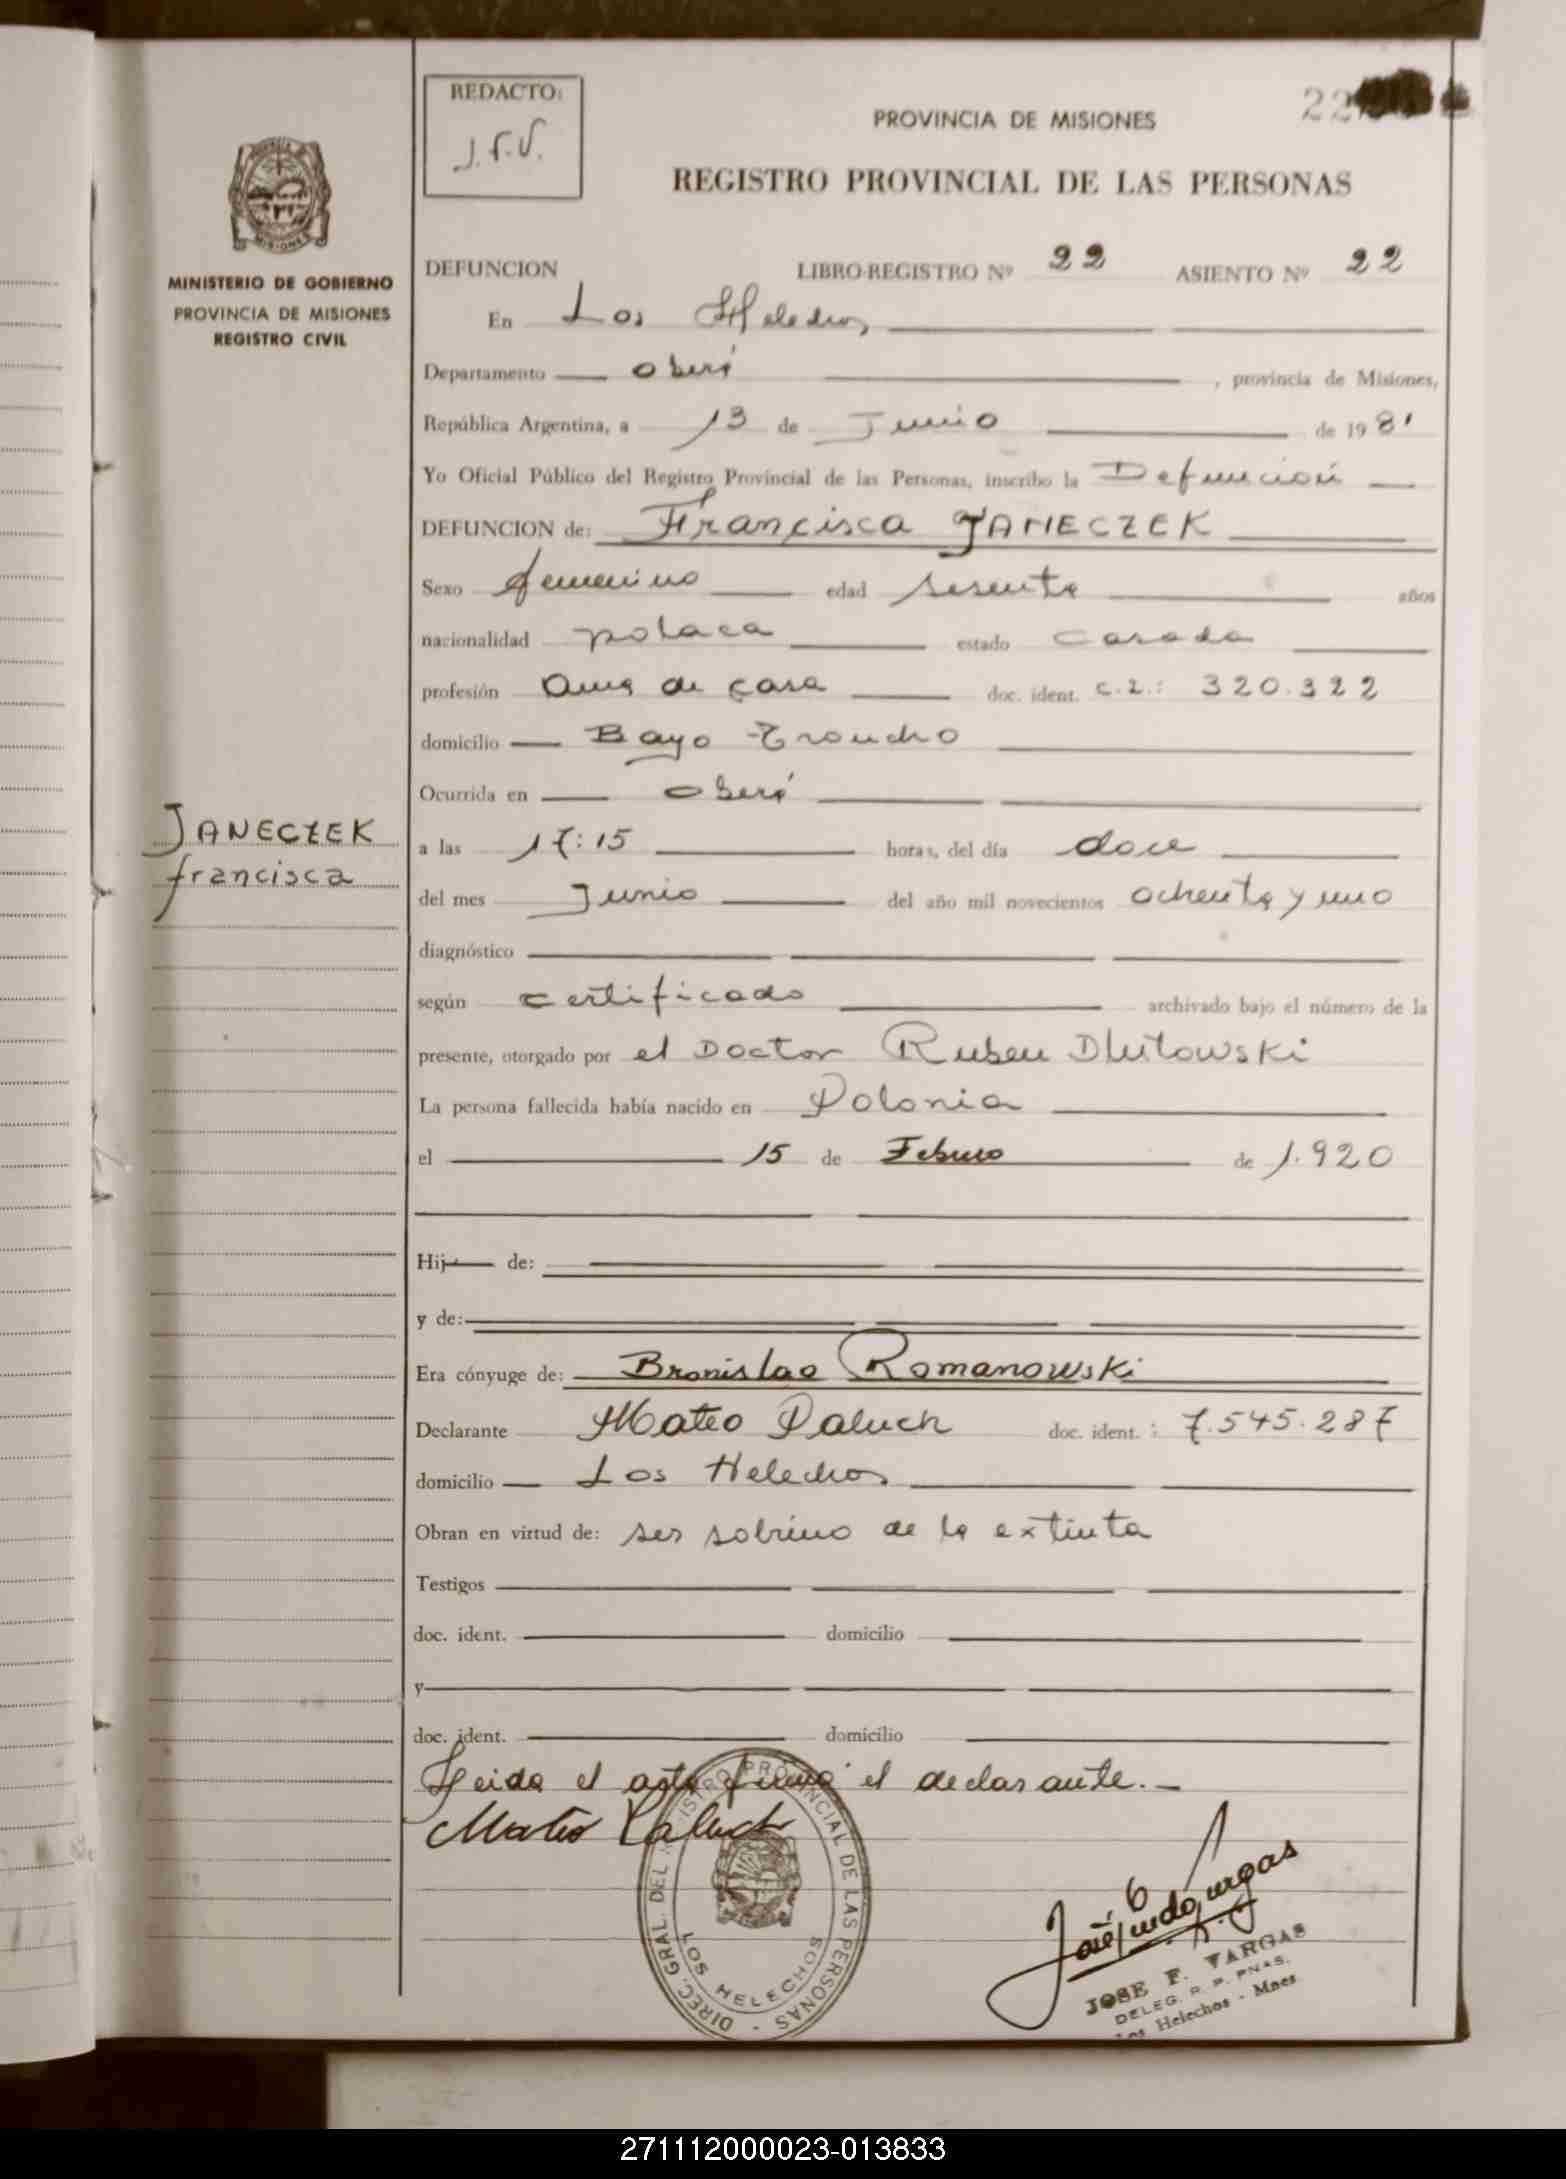 REDACTO:
J.F.V.
22
PROVINCIA DE MISIONES
REGISTRO PROVINCIAL DE LAS PERSONAS
MISIONES
MINISTERIO DE GOBIERNO
PROVINCIA DE MISIONES
REGISTRO CIVIL
DEFUNCION LIBRO-REGISTRO Nº 22 ASIENTO Nº 22
En Los Helechos
Departamento Oberá, provincia de Misiones,
República Argentina, a 13 de Junio de 1981
Yo Oficial Público del Registro Provincial de las Personas, inscribo la Defunción
DEFUNCION de: Francisca JANECZEK
Sexo femenino edad sesenta años
nacionalidad polaca estado casada
profesión Ama de casa doc. ident. C.I.: 320.322
domicilio Bayo Troncho
Ocurrida en Oberá
JANECZEK
francisca
a las 17:15 horas, del día doce
del mes Junio del año mil novecientos ochenta y uno
diagnóstico
según certificado archivado bajo el número de la
presente, otorgado por el Doctor Ruben Dlutowski
La persona fallecida había nacido en Polonia
el 15 de Febrero de 1.920
Hij de:
y de:
Era cónyuge de: Bronislao Romanowski
Declarante Mateo Paluch doc. ident.: 7.545.287
domicilio Los Helechos
Obran en virtud de: ser sobrino de la extinta
Testigos
doc. ident. domicilio
y
doc. ident. domicilio
Leida el acta firma el declarante.-
Mateo Paluch
DIREC. GRAL. DEL REGISTRO PROVINCIAL DE LAS PERSONAS -
LOS HELECHOS
JOSE F. VARGAS
DELEG. R. P. PNAS.
Los Helechos - Mnes
271112000023-013833